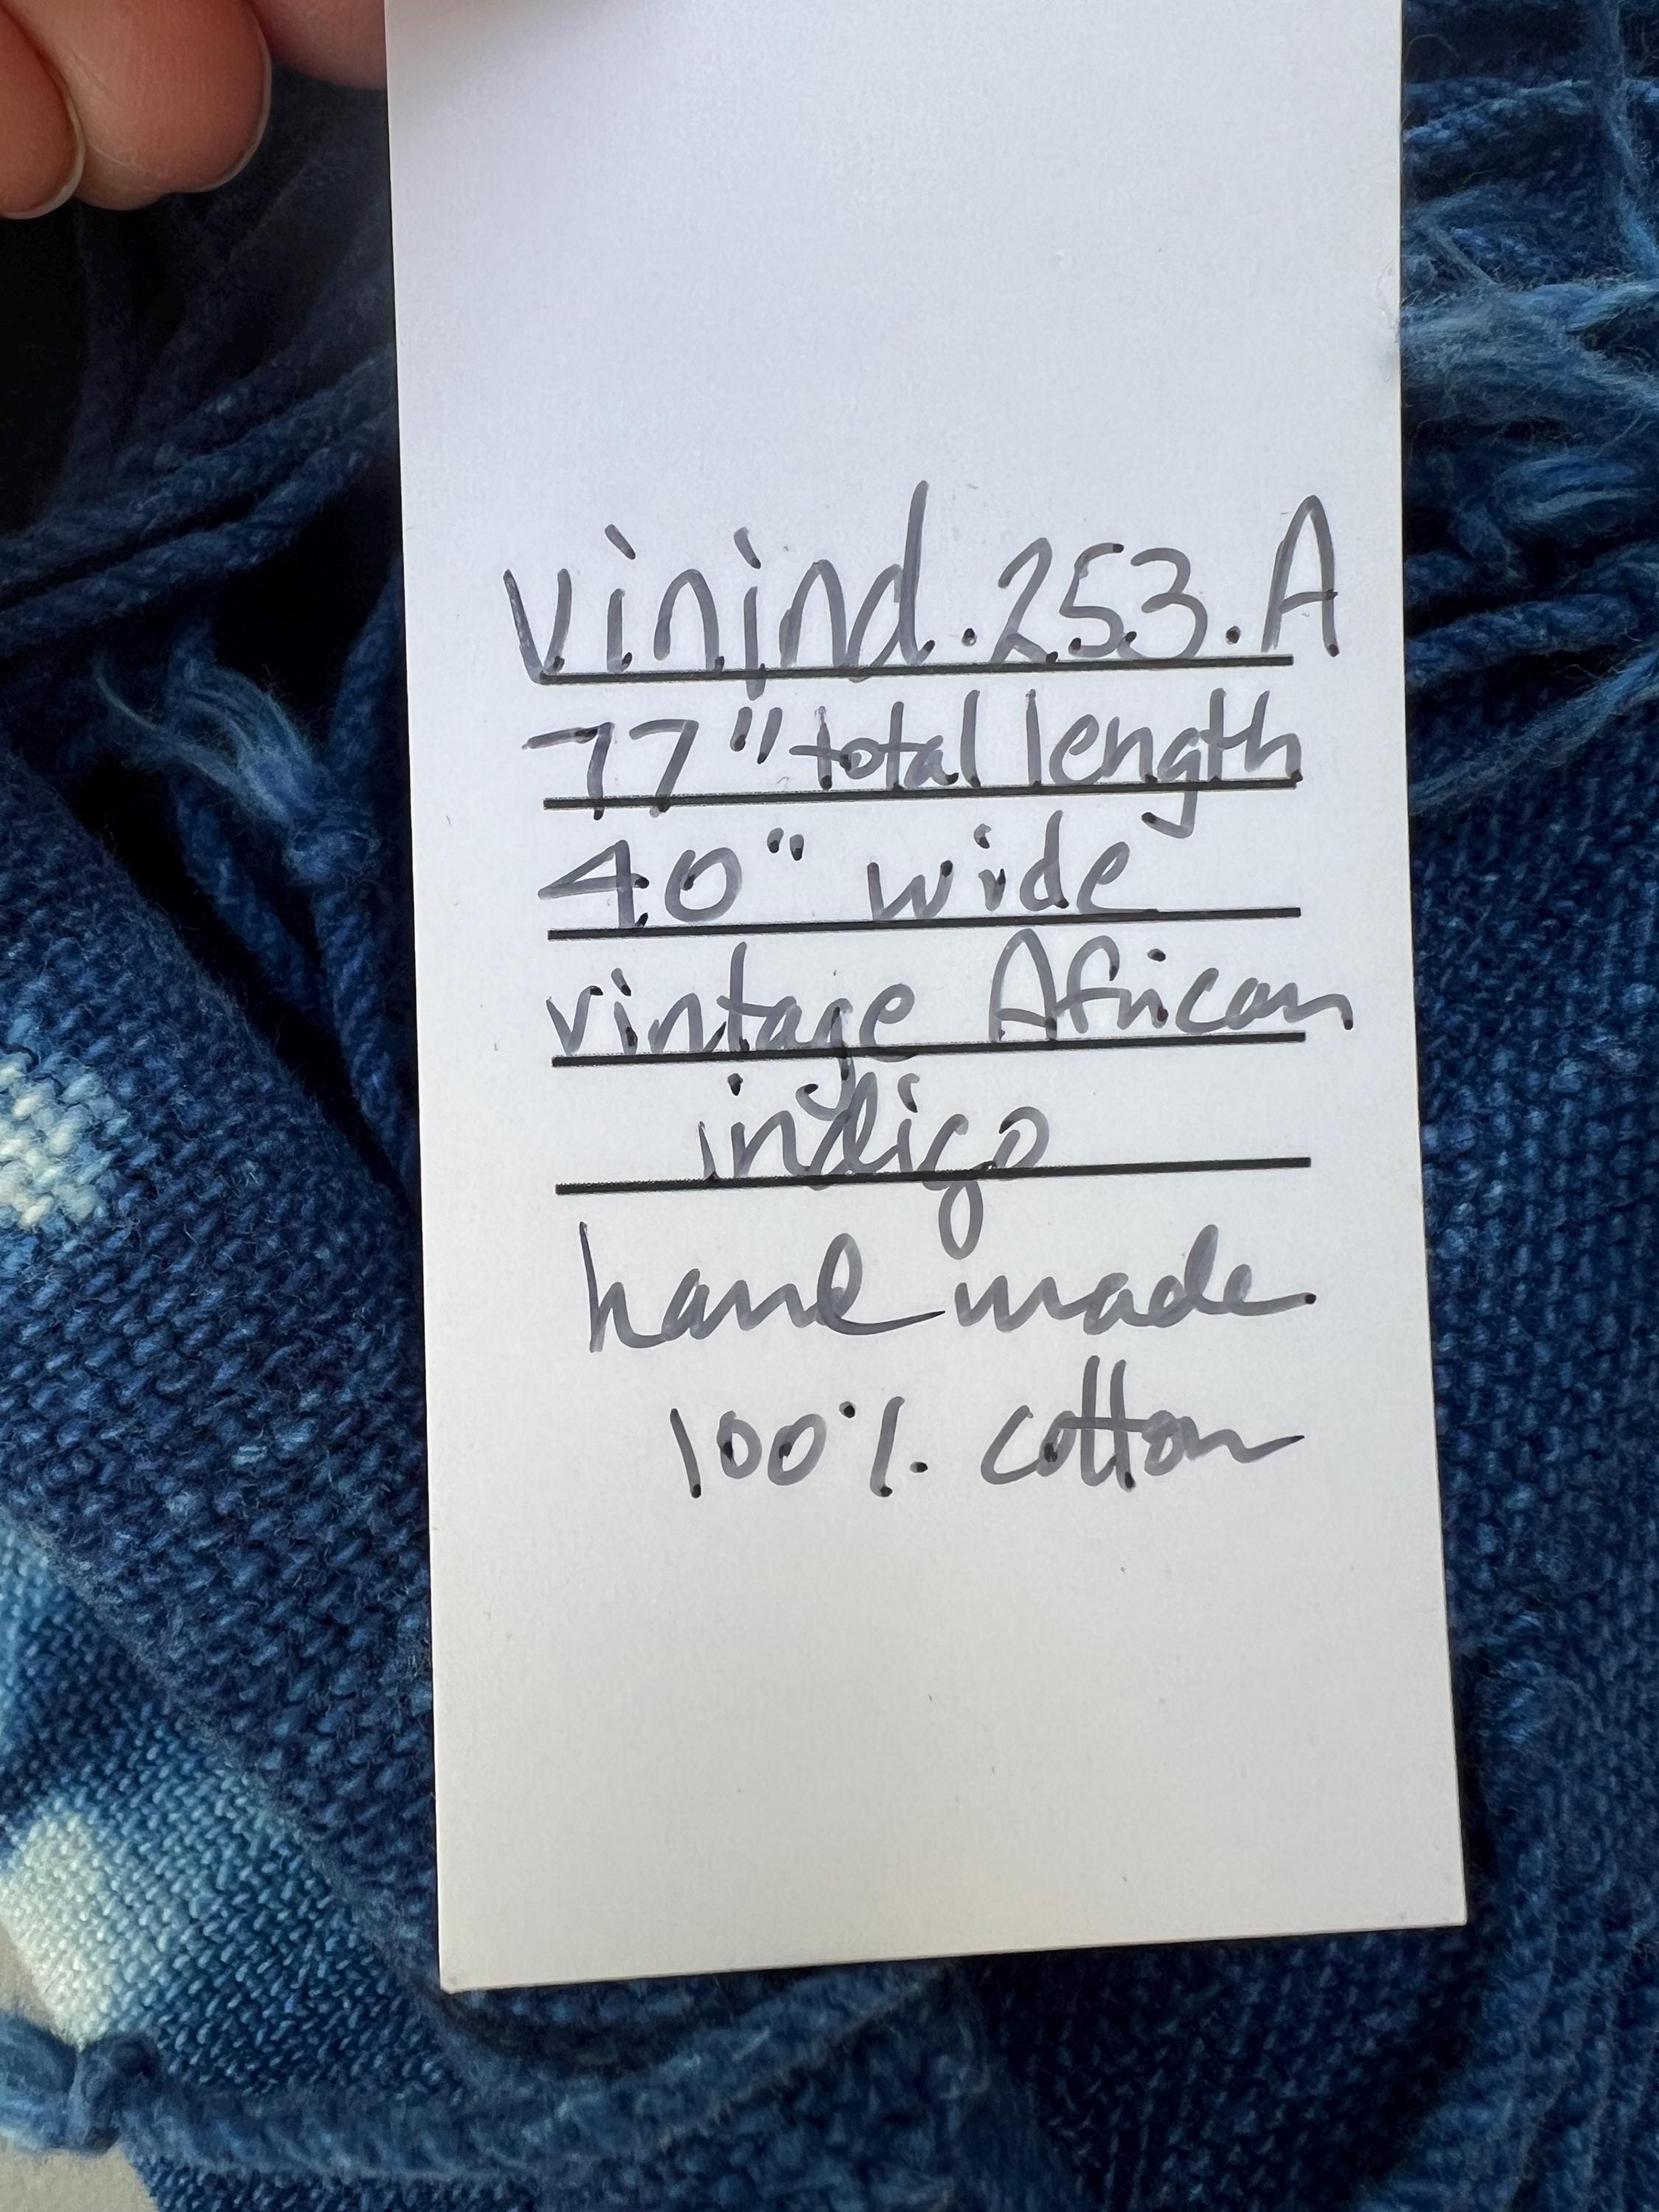 vinind.253.A
77" total length
40" wide
vintage African
indigo
hand made
100% cotton